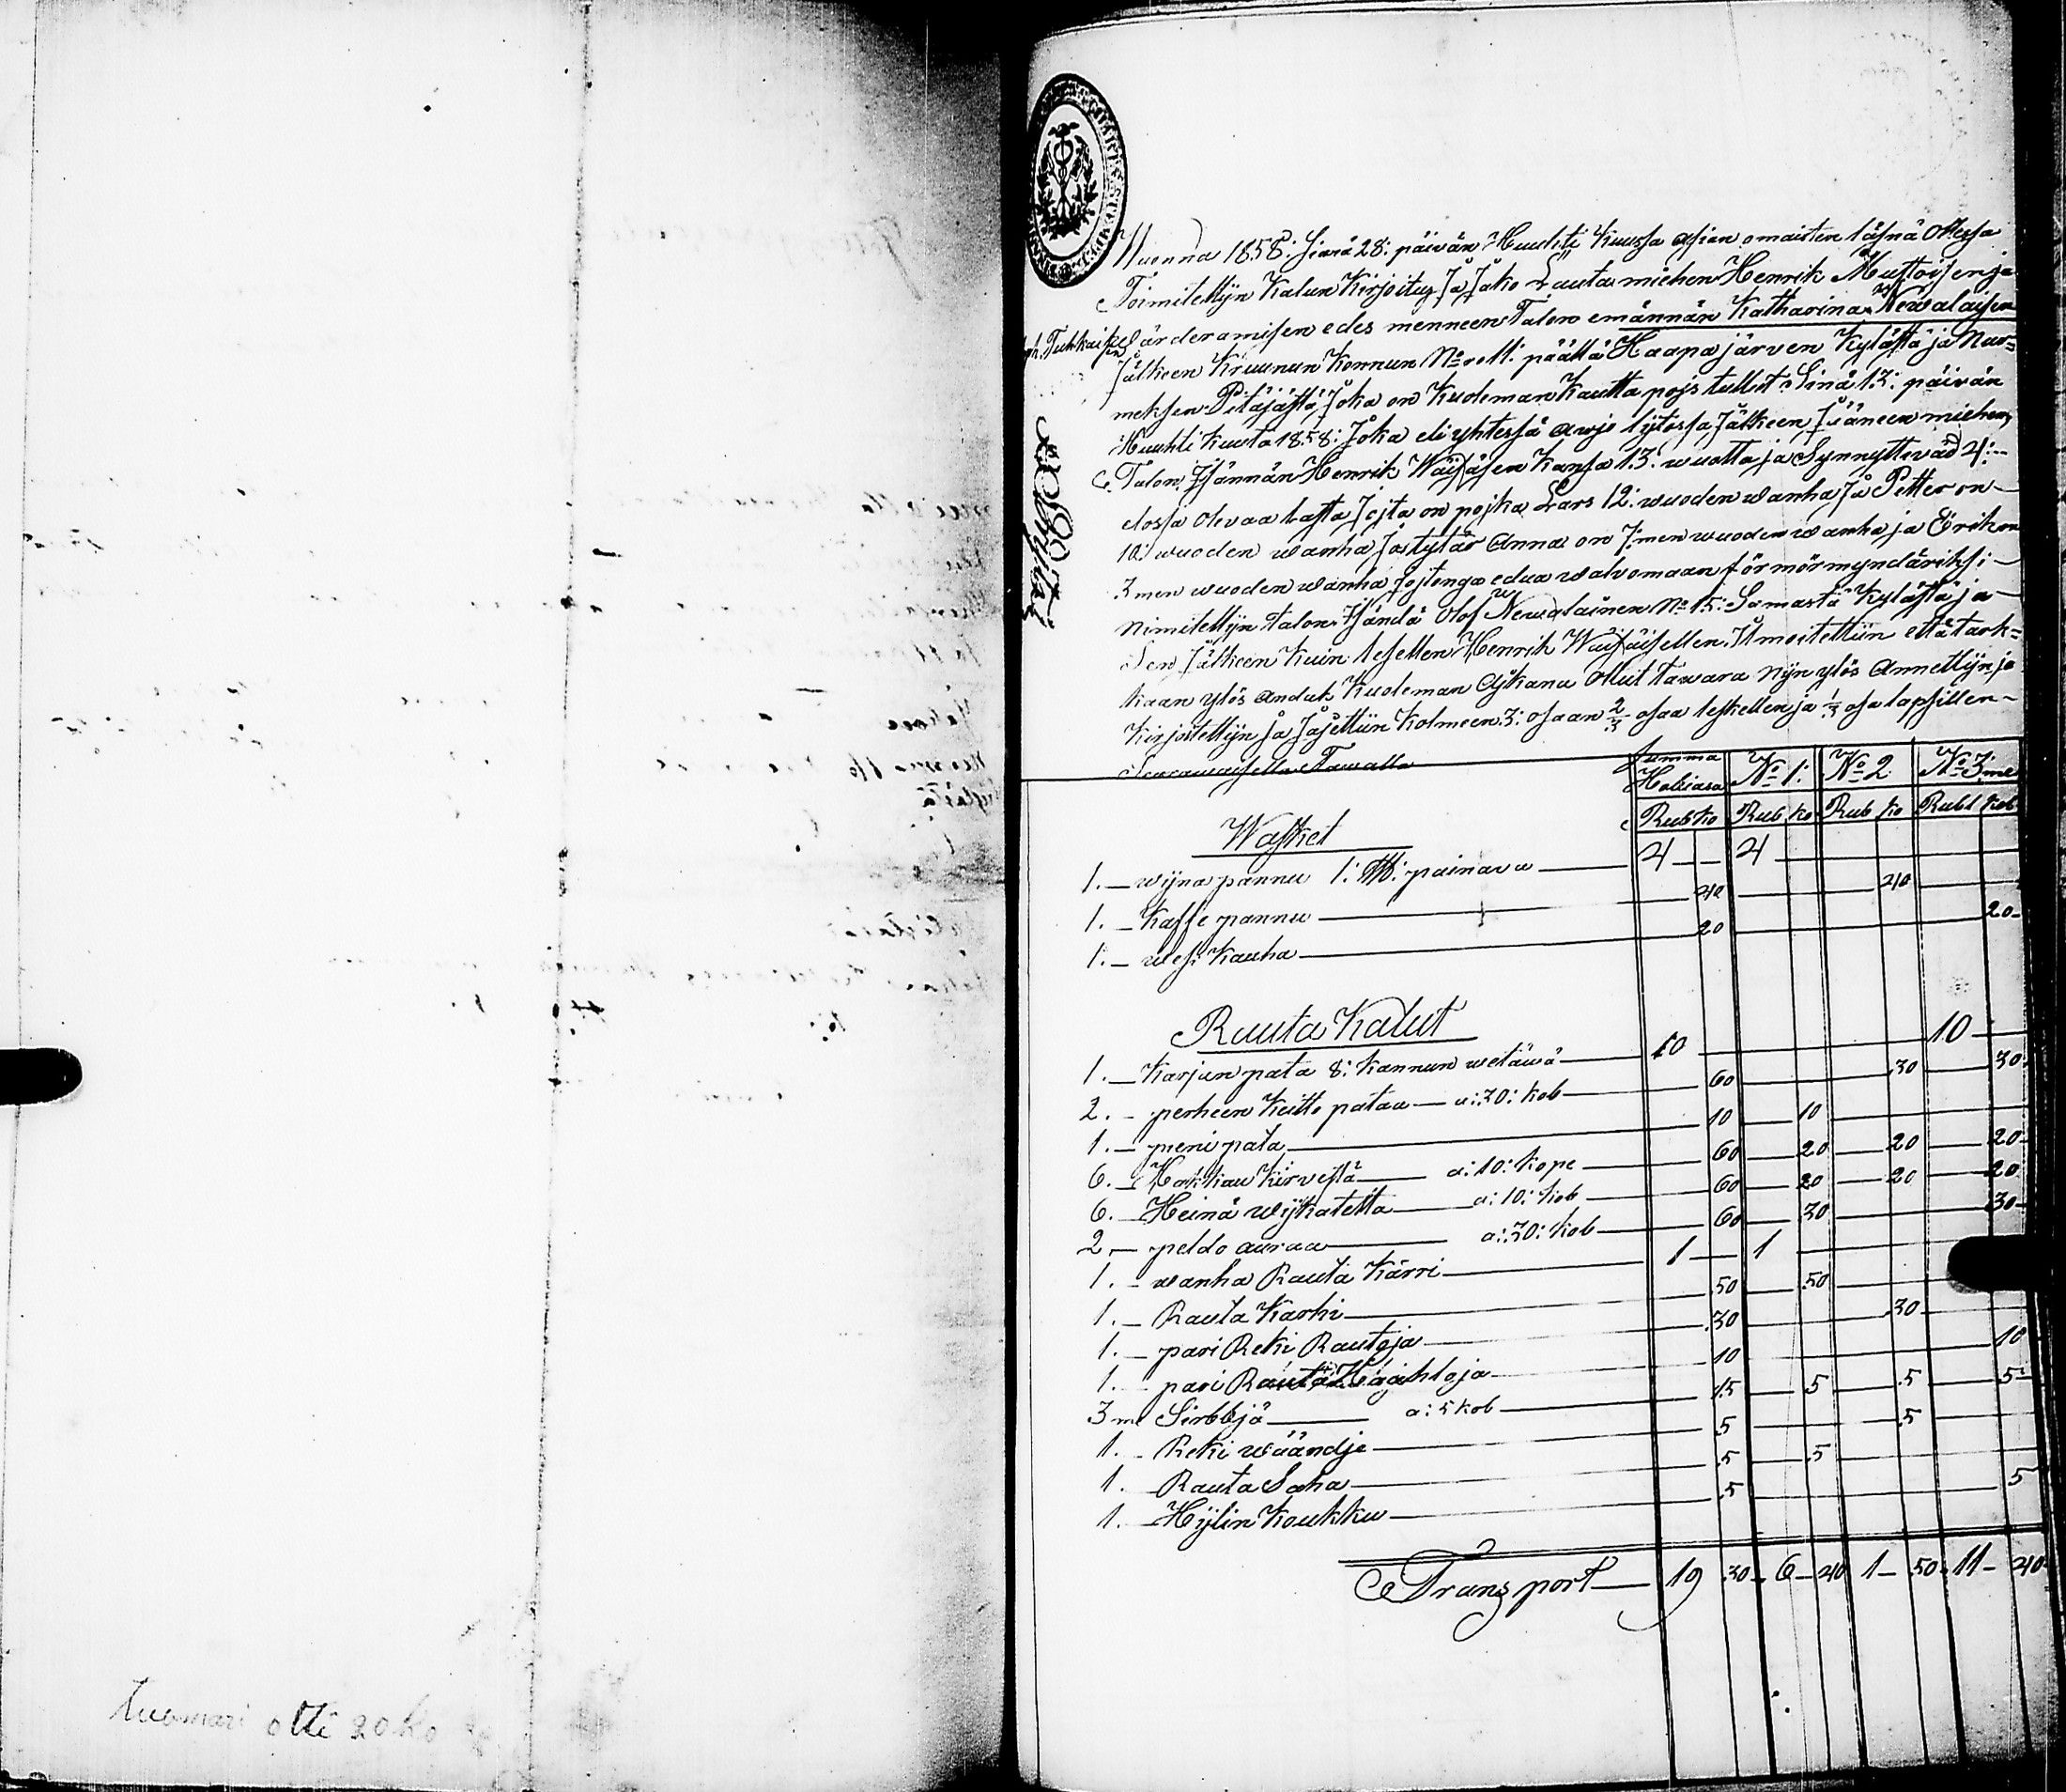 tuomari otti 20 ko
Wuonna 1858: sinä 28: päivän Huuhti Kuussa asian omaisten läsnä ollessa
Toimitettijn Kalun Kirjoitus Ja Jako Lauta miehen Henrik Mustoisen ja
Joh. Tuhkaisen Värderamisen edes menneen Talon emännän Katharina Newalaisen
Jälkeen Kruunun Konnun No 11: päältä Haapajärven Kylästä ja Nur=
meksen Pitäjästä, Joka on Kuoleman Kautta pojs tullut Sinä 13: päivän
Huuhti Kuuta 1858: Joka eli yhtessä awjo lijtossa Jälkeen Jääneen miehen,
Talon Isännän Henrik Wäisäsen Kansa 13: wuotta ja Synnytteväd 4:
elossa olevaa lasta Jojta on pojka Lars 12: wuoden wanha Ja Petter on
10: wuoden wanha Ja tytär Anna on 7:men wuoden wanha ja Erik on
3 men wuoden wanha Jojtenga edua walvomaan förmörmyndäriksi
Nimitettijn talon Isändä Olof Newalainen No 15: Samasta Kylästä ja
Sen Jälkeen Kuin leskellen Henrik Wäisäisellen Ilmoitettiin että tark=
kaan ylös anduk Kuoleman Ajkana ollut tawara Nijn ylös Annettijn ja
Kirjoitettijn Ja Jajettiin Kolmeen 3: osaan 2/3 osaa leskellen ja 1/3 osa lapsillen
Seuraawaisella Tawalla
Summa No 1: No 2 No 3:me
Rub ko Rub ko Rub ko Rubl kob
Wasket
1. wijna pannu 1: painava 4 4
1. Kaffe pannu 40 40
1. wesi Kauha 20 20
Rauta Kalut
1. Karjun pata 8: Kannun wetäwä 10 10
2. perheen Keitto pataa a: 30: kob 60 30 30
1. pieni pata 10 10
6. Hakkau Kirvestä a: 10: kope 60 20 20 20
6. Heinä wijkatetta a: 10: kob 60 20 20 20
2 peldo auraa a: 30: kob 60 30 30
1. wanha Rauta Kärri 1 1
1. Rauta Karhi 50 50
1. pari Reki Rautoja 30 30
1. pari Rauta Kahloja 10 10
3 me Sirbbjä a: 5 kob 15 5 5 5
1. Reki wäändjä 5 5
1. Rauta Saha 5 5
1. Hijlin Koukku 5 5
Transport 19 30 6 40 1 50 11 40